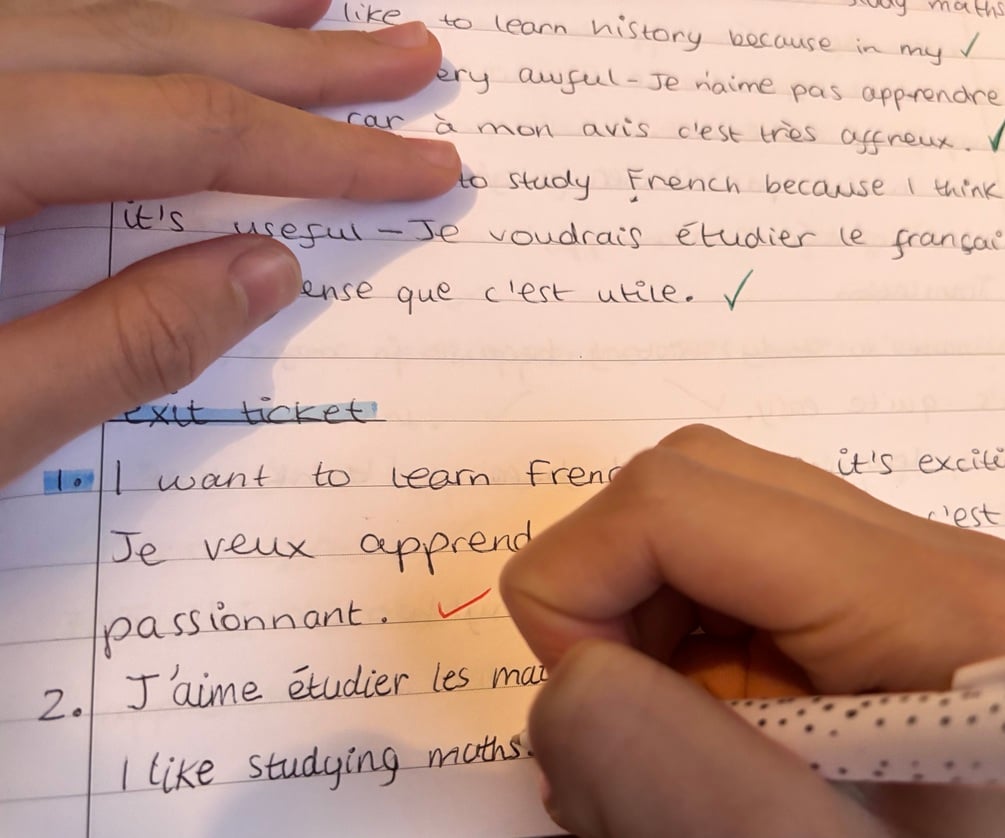 study maths
like to learn history because in my
ery awful - Je n'aime pas apprendre
car à mon avis c'est très affreux.
to study French because I think
it's useful - Je voudrais étudier le françai
ense que c'est utile.
exit ticket
1. I want to learn Frenc it's exciti
Je veux apprend c'est
passionnant.
2. J'aime étudier les mat
I like studying maths.